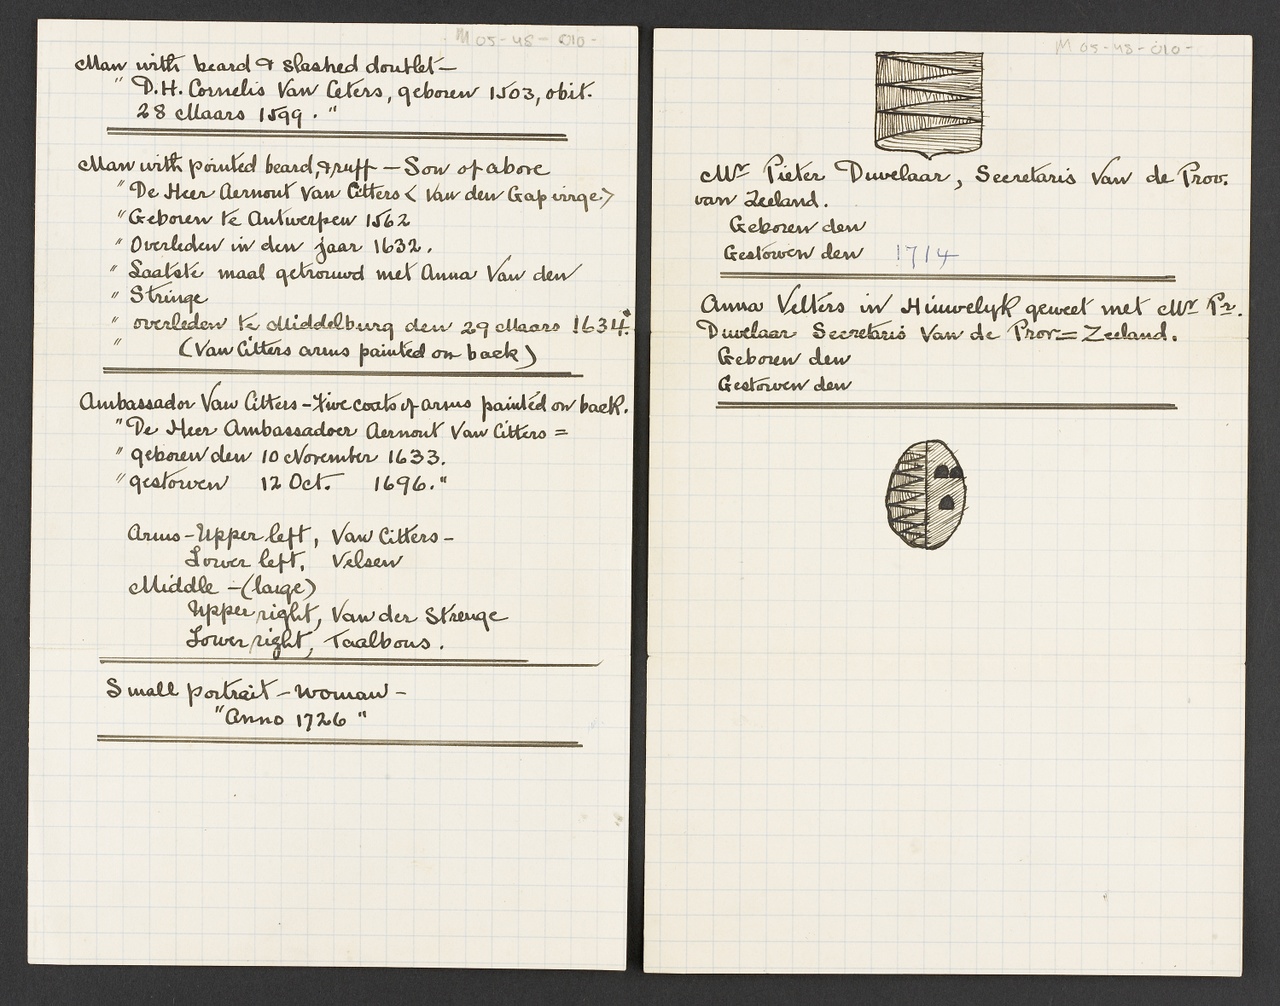 M 05-48-010-
Man with beard & slashed doublet—
" D.H. Cornelis Van Ceters, geboren 1503, obit.
28 Maars 1599. "
Man with pointed beard, & ruff — Son of above
" De Heer Aernout Van Citters < Van den Gapinge >
" Geboren te Antwerpen 1562
" Overleden in den jaar 1632.
" Laatste maal getrouwd met Anna Van den
" Stringe
" overleden te Middelburg den 29 Maars 1634."
" (Van Citters arms painted on back)
Ambassador Van Citters - Five coats of arms painted on back.
" De Heer Ambassadoer Aernout Van Citters =
" geboren den 10 November 1633.
" gestorven 12 Oct. 1696."
Arms - Upper left, Van Citters -
Lower left, Velsen
Middle - (large)
Upper right, Van der Strenge
Lower right, Taalbous.
Small portrait - woman -
"Anno 1726"
M 05-48-010-
Mr Pieter Duvelaar, Secretaris Van de Prov.
van Zeeland.
Geboren den
Gestorven den 1714
Anna Velters in Hiuwelyk geweet met Mr Pr.
Duvelaar Secretaris Van de Prov= Zeeland.
Geboren den
Gestorven den